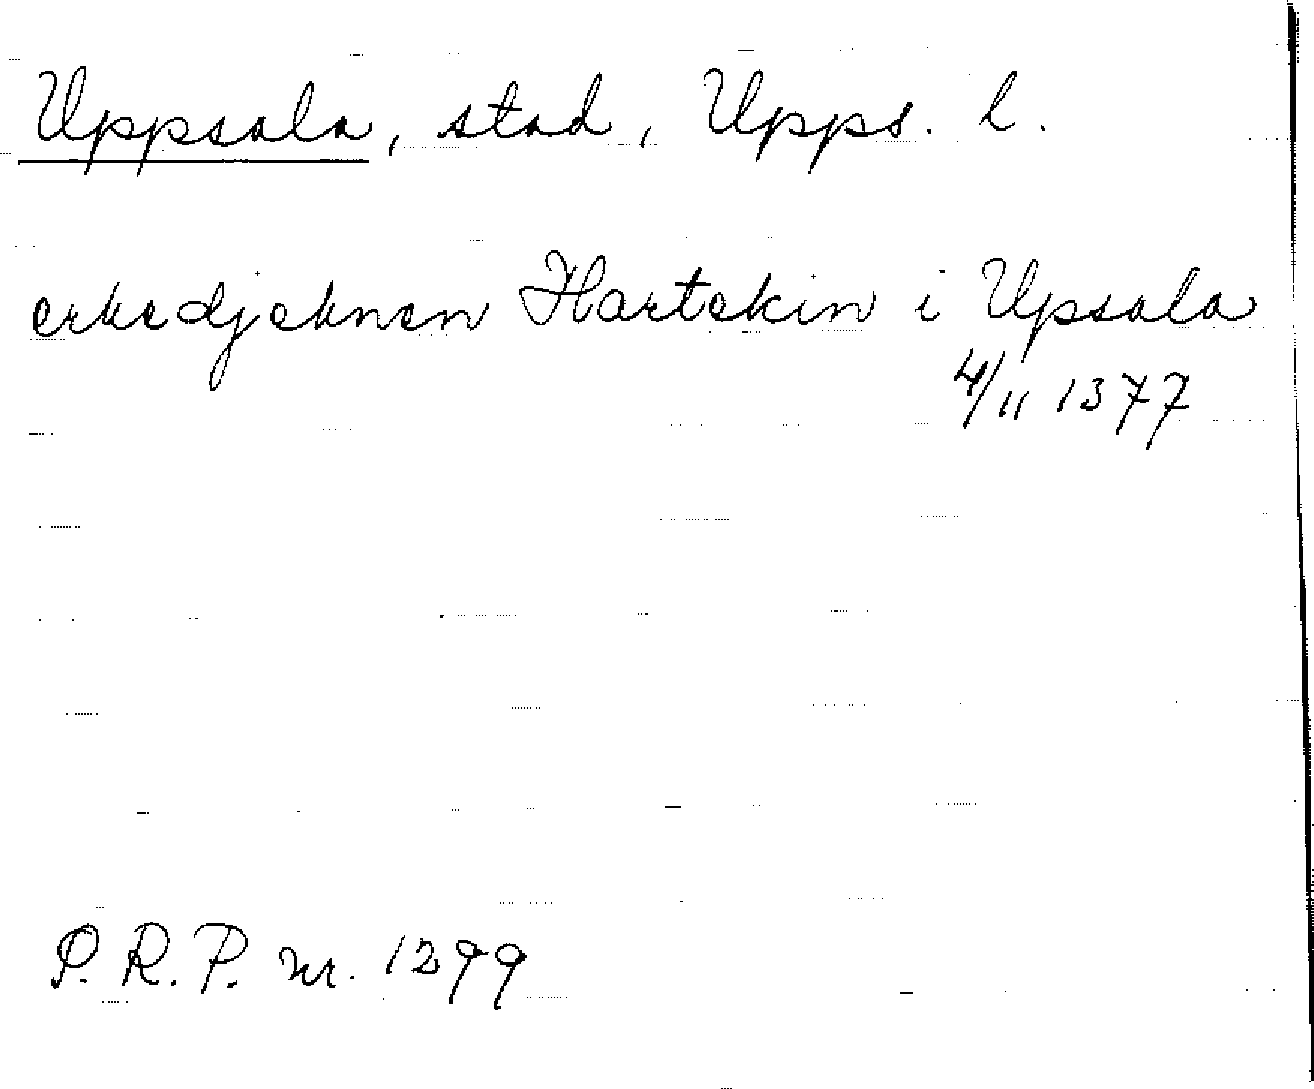 Uppsala, stad, Upps. l.
erkedjeknen Hartekin i Upsala
4/11 1377
P.R.P. nr. 1299